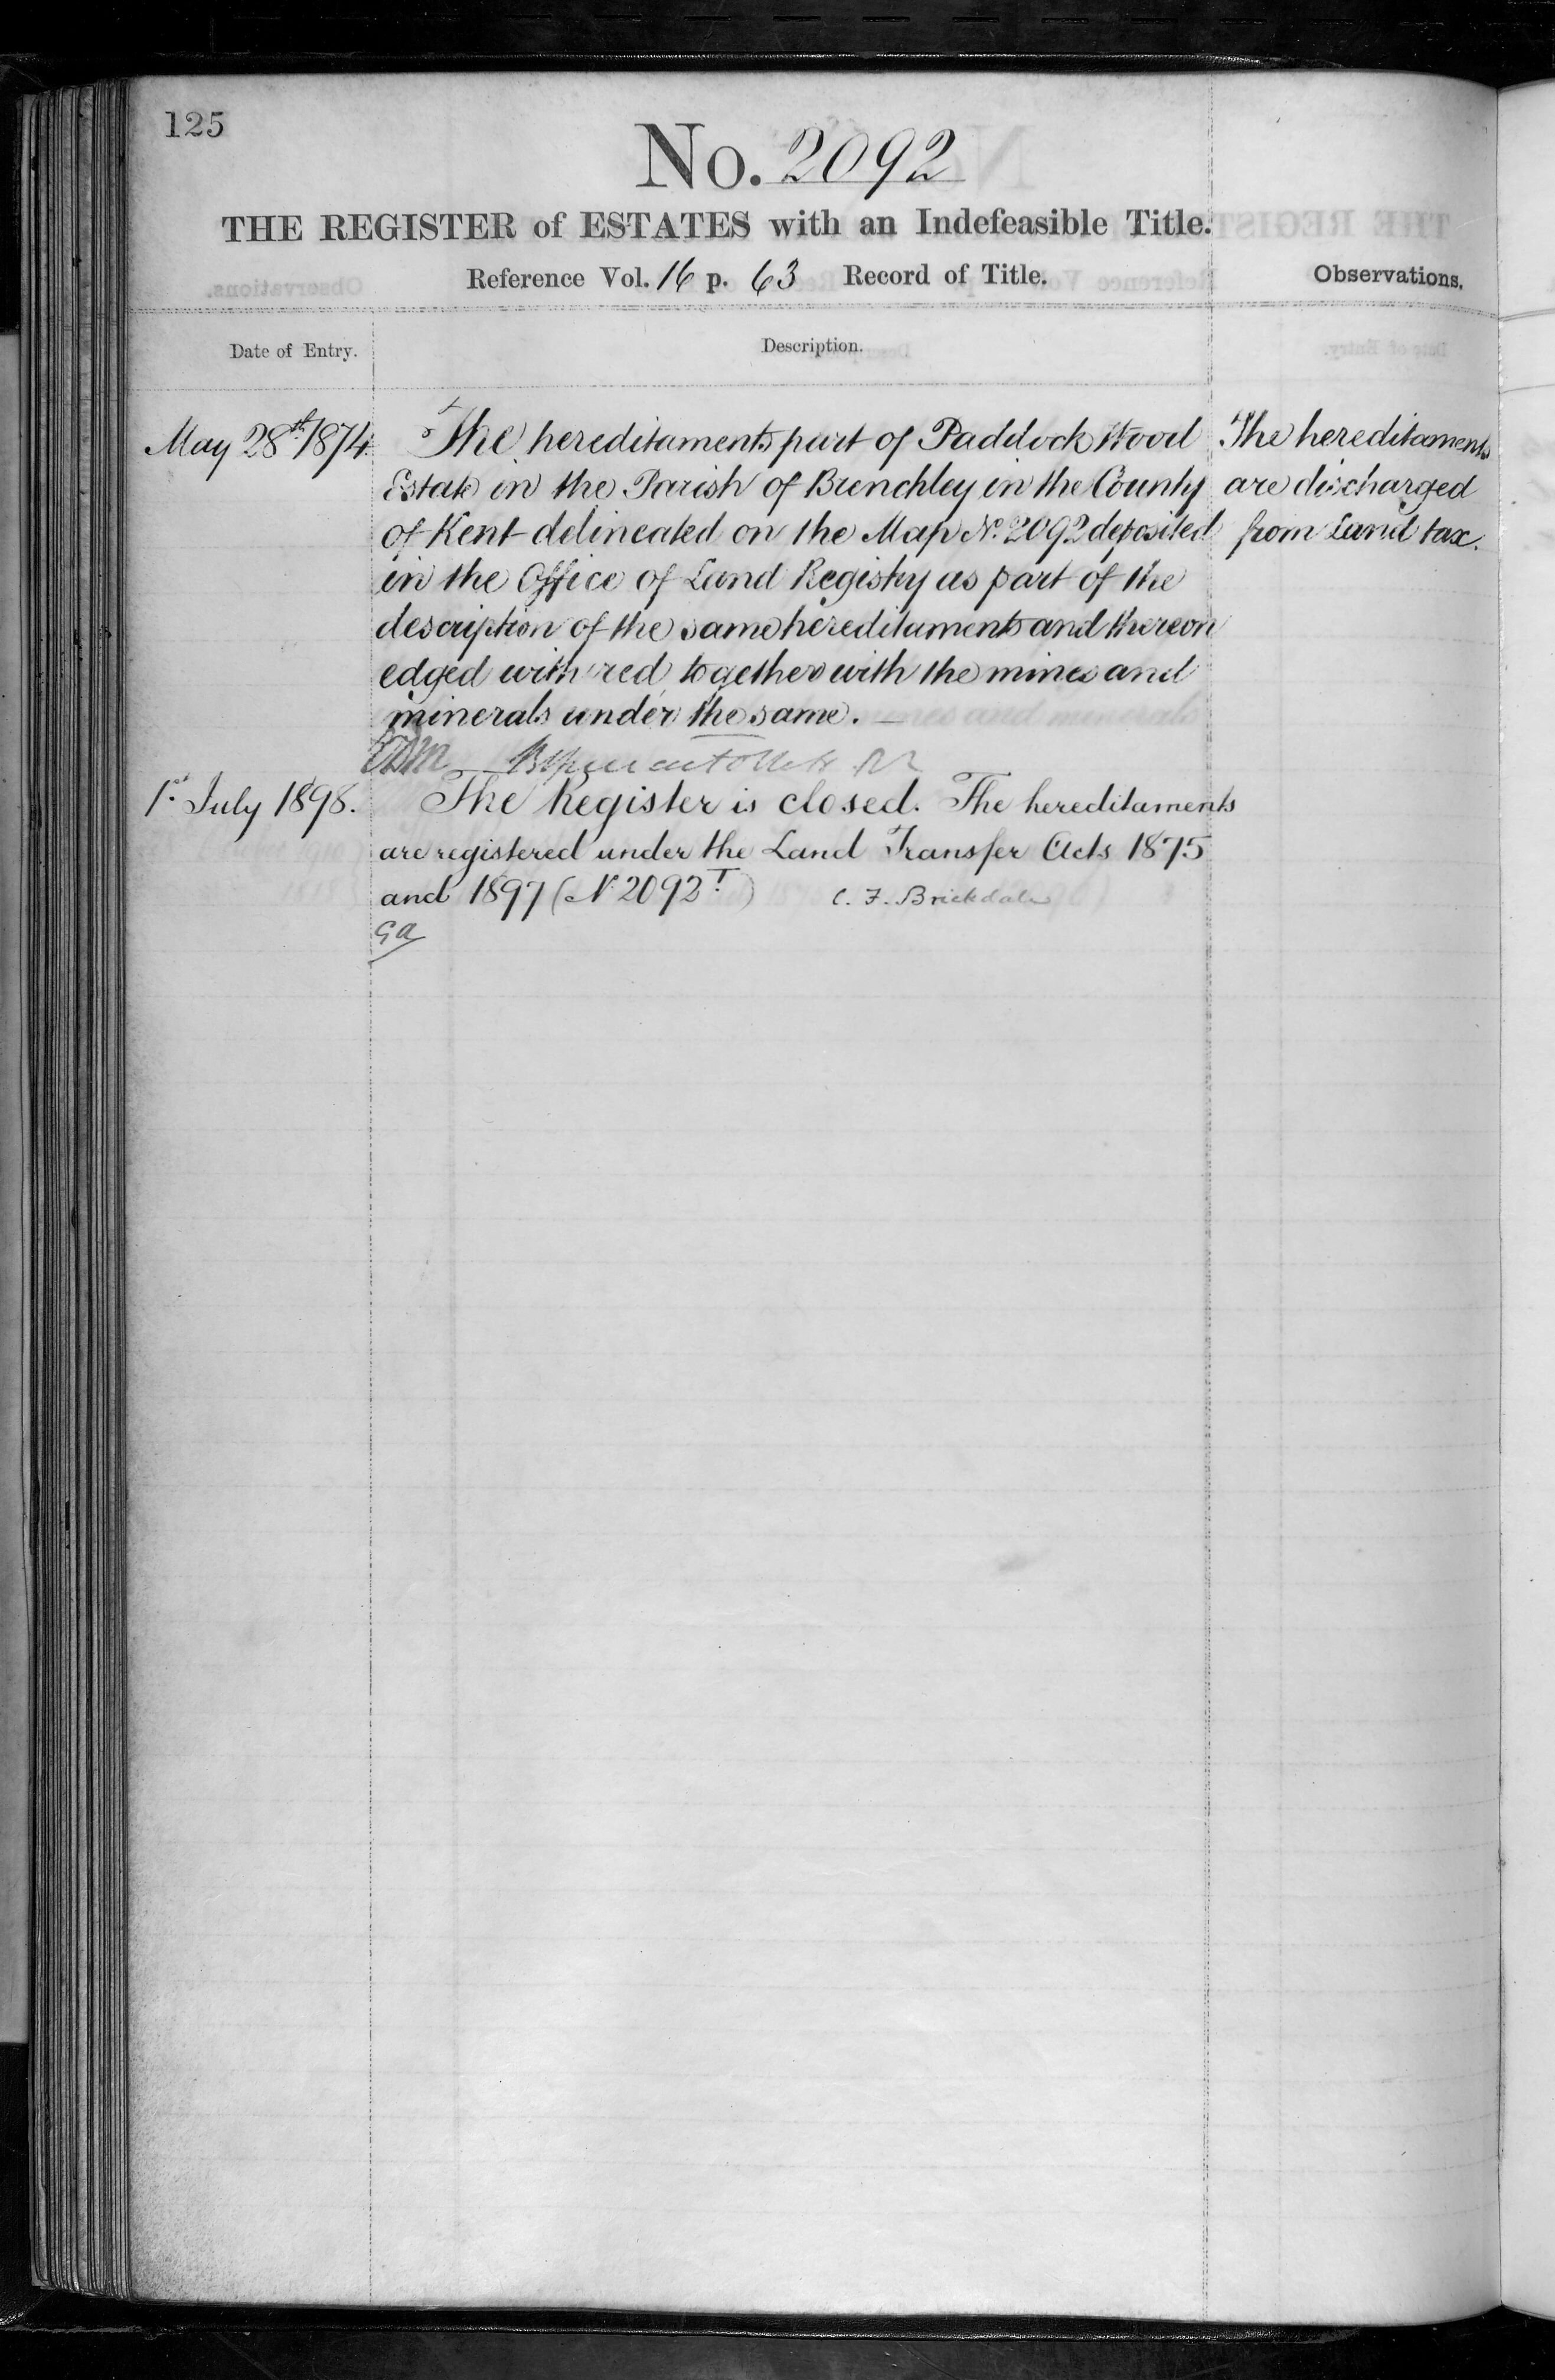 125
No. 2092
THE REGISTER of ESTATES with an Indefeasible Title.
Reference Vol. 16 p. 63 Record of Title.
Observations.
Date of Entry.
Description.
May 28th 1874
The hereditaments part of Paddock Wood
Estate in the Parish of Brenchley in the County
of Kent delineated on the Map No. 2092 deposited
in the Office of Land Registry as part of the
description of the same hereditaments and thereon
edged with red, together with the mines and
minerals under the same.
The hereditaments
are discharged
from Land tax.
1st July 1898.
The Register is closed. The hereditaments
are registered under the Land Transfer Acts 1875
and 1897 (No 2092T) C. F. Brickdale
GA